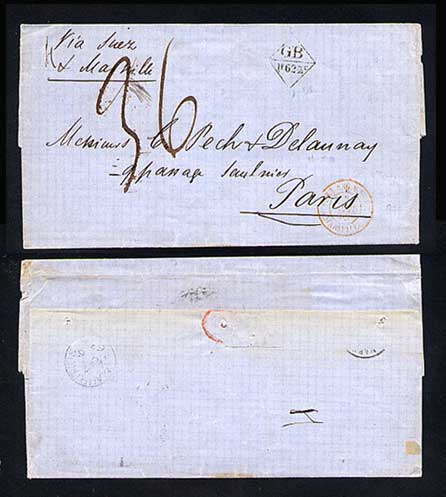 via Suez
& Marseille
GB
36
Messieurs C Pech & Delaunay
passage saulnier
Paris